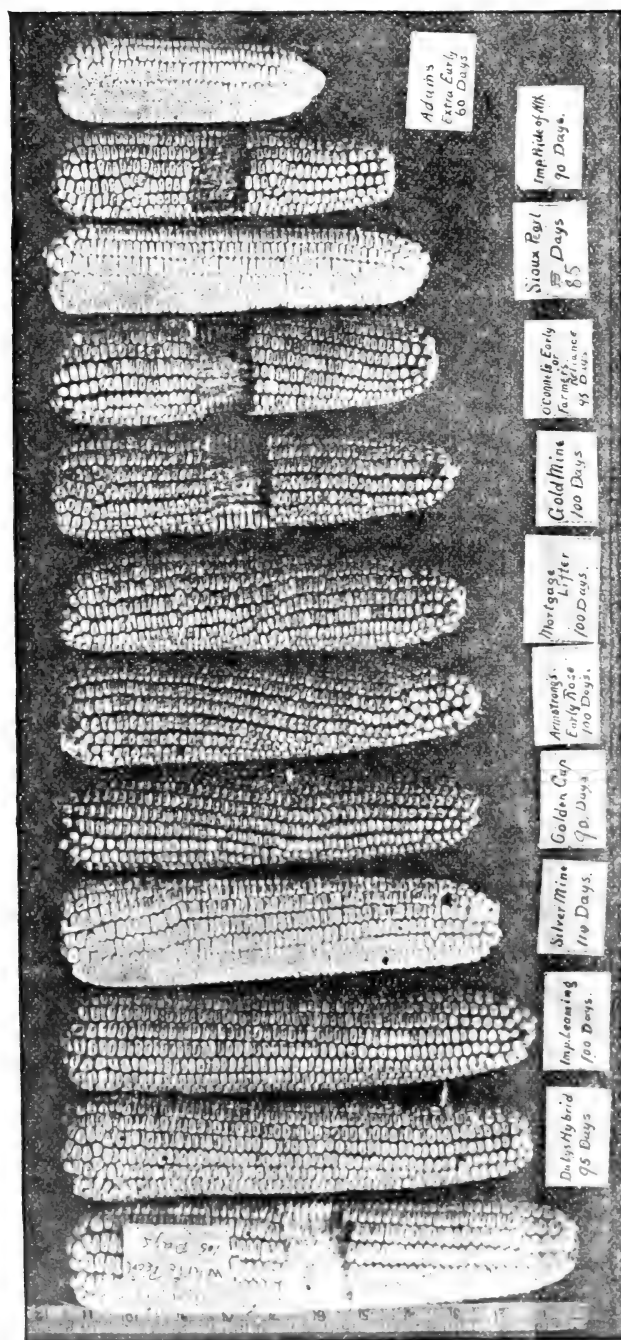 Adams
Extra Early
60 Days
Imp. Pride of Nth.
90 Days.
Sioux Pearl
Days
85
O'Connel's Early
or
Farmers Reliance
95 Days
Gold Mine
100 Days
Mortgage
Lifter
100 Days.
Armstrong's.
Early Rose
100 Days.
Golden Cap
90 Days
Silver Mine
110 Days.
Imp. Leaming
100 Days.
Dalys Hybrid
95 Days
White Pearl
105 Days